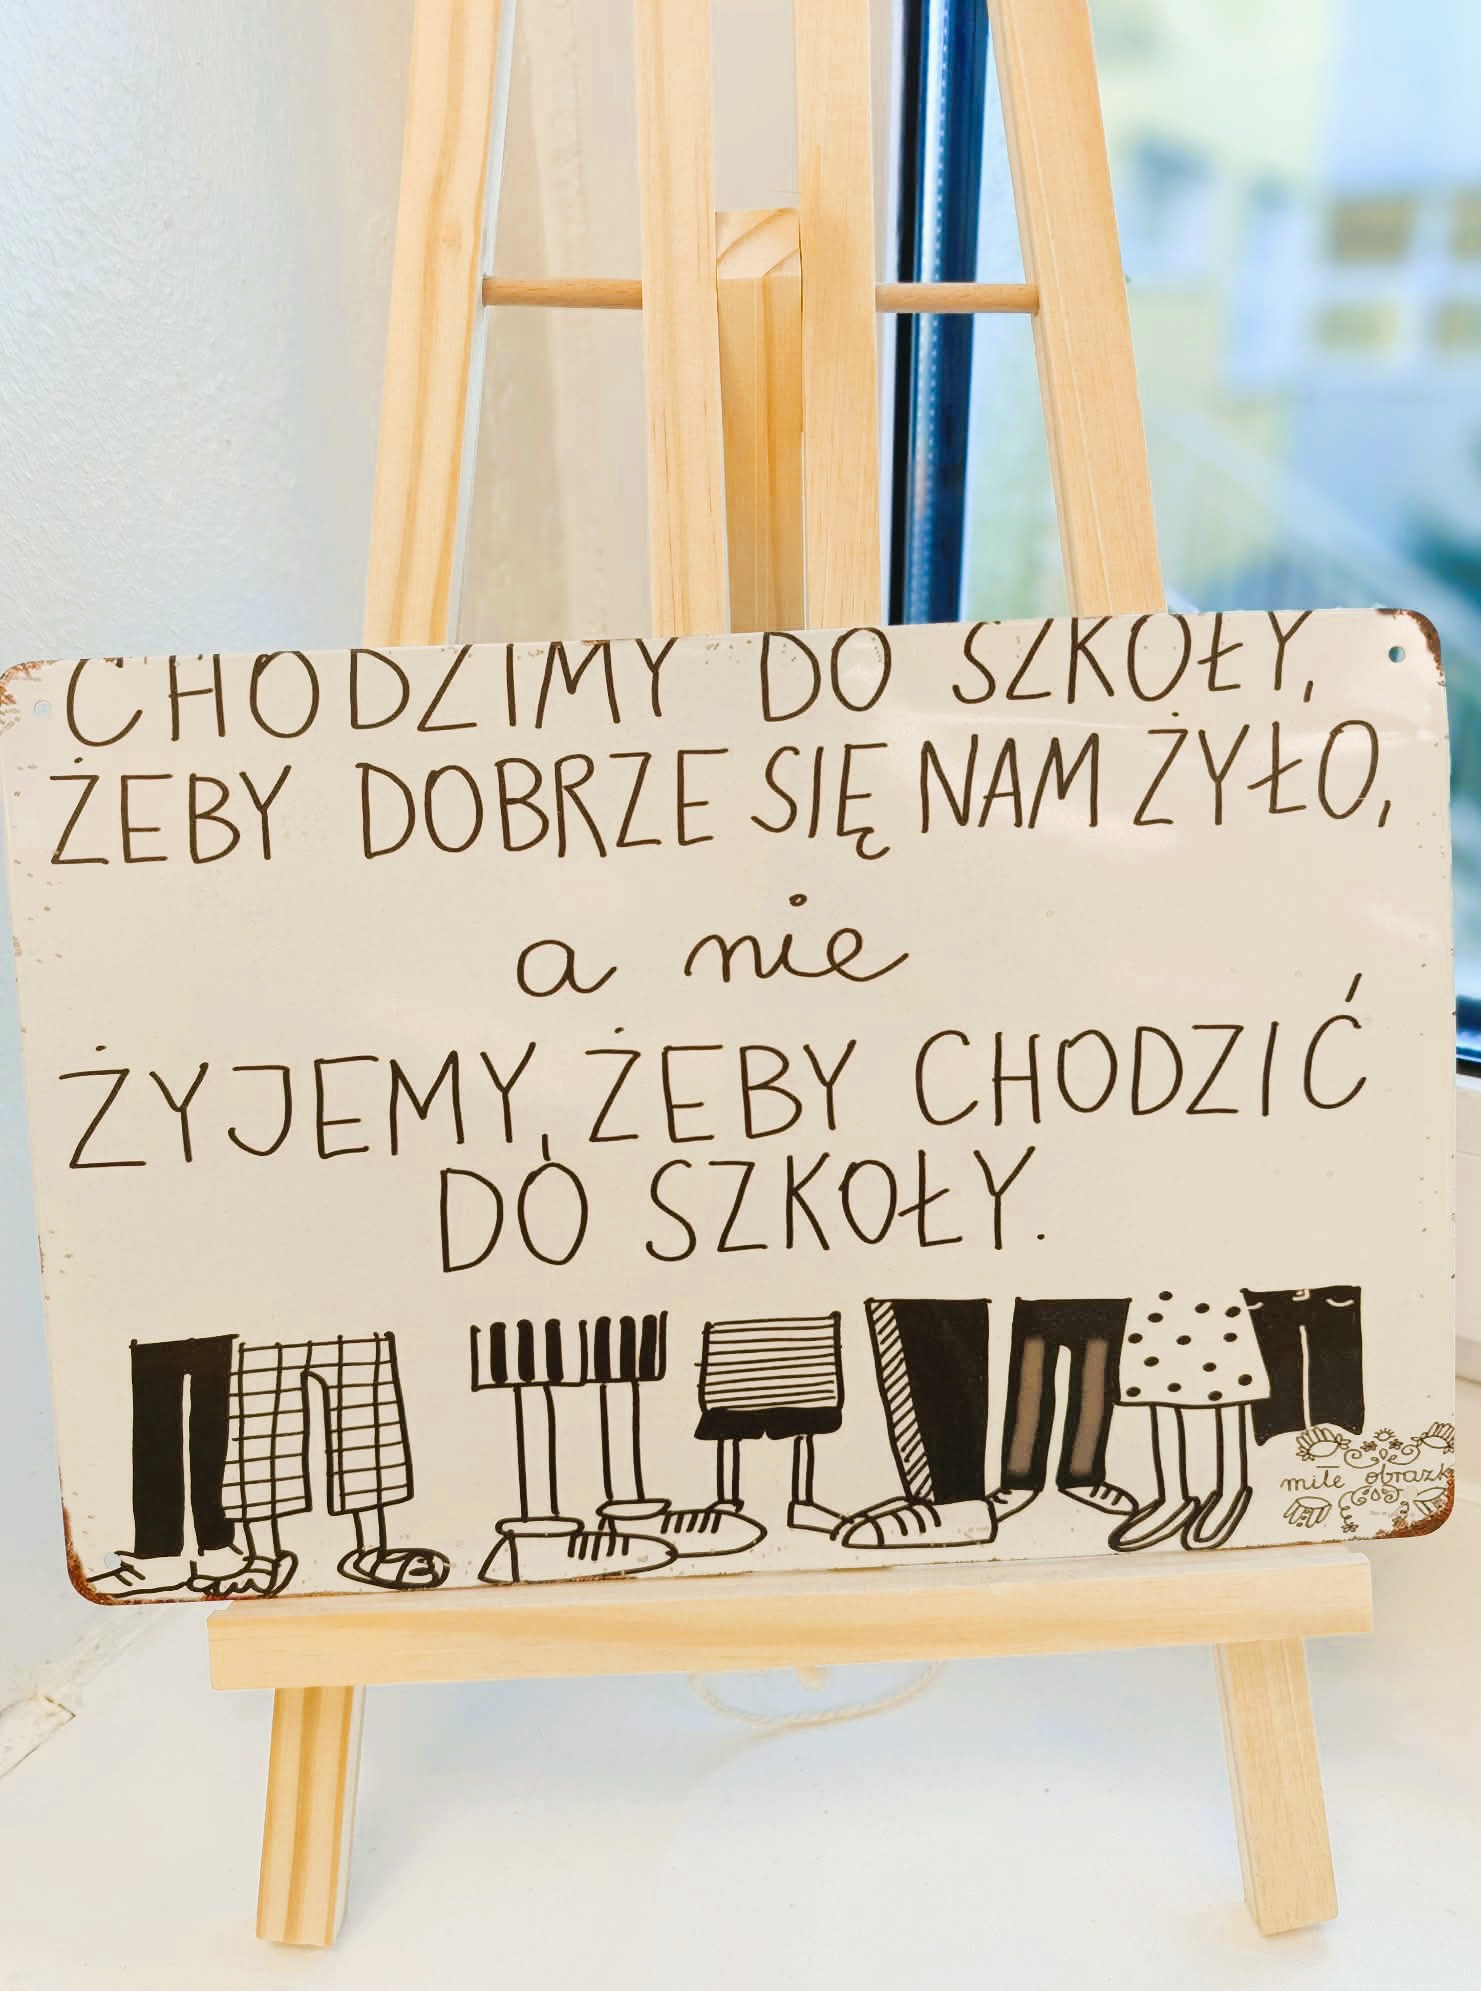 CHODZIMY DO SZKOŁY,
ŻEBY DOBRZE SIĘ NAM ŻYŁO,
a nie
ŻYJEMY, ŻEBY CHODZIĆ
DO SZKOŁY.
miłe obrazk